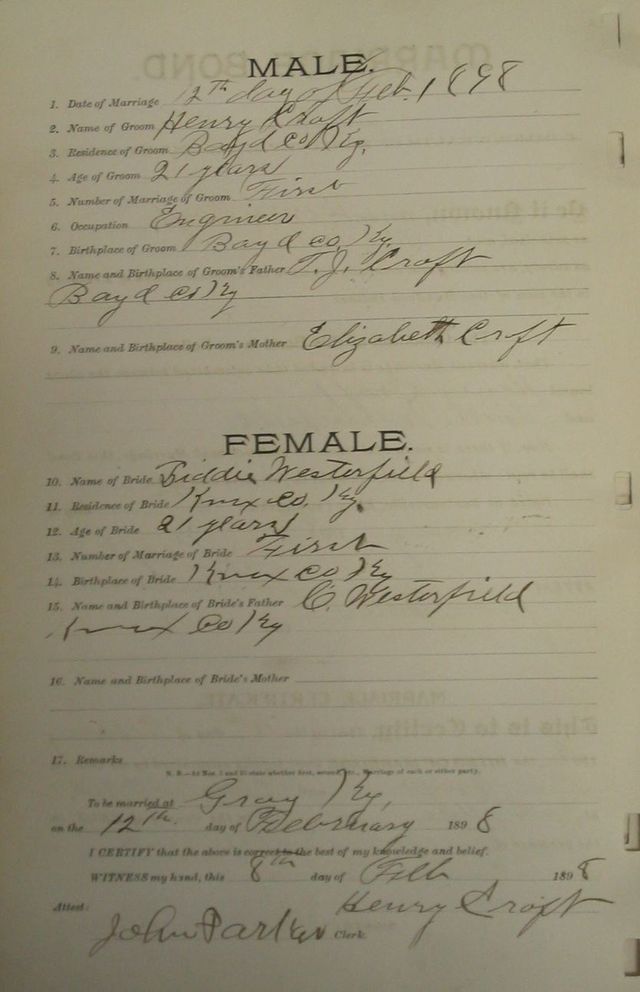 MALE.
1. Date of Marriage 12th day of Feb. 1898
2. Name of Groom Henry Croft
3. Residence of Groom Boyd Co Ky.
4. Age of Groom 21 years
5. Number of Marriage of Groom First
6. Occupation Engineer
7. Birthplace of Groom Boyd co. Ky.
8. Name and Birthplace of Groom's Father T. J. Croft
Boyd Co Ky
9. Name and Birthplace of Groom's Mother Elizabeth Croft
FEMALE.
10. Name of Bride Biddie Westerfield
11. Residence of Bride Knox Co. Ky.
12. Age of Bride 21 years
13. Number of Marriage of Bride First
14. Birthplace of Bride Knox co Ky
15. Name and Birthplace of Bride's Father C. Westerfield
Knox Co Ky
16. Name and Birthplace of Bride's Mother
17. Remarks
N. B.—At Nos. 5 and 13 state whether first, second, etc., Marriage of each or either party.
To be married at Gray Ky,
on the 12th day of February 1898
I CERTIFY that the above is correct to the best of my knowledge and belief.
WITNESS my hand, this 8th day of Feb 1898
Henry Croft
Attest:
John Parker Clerk